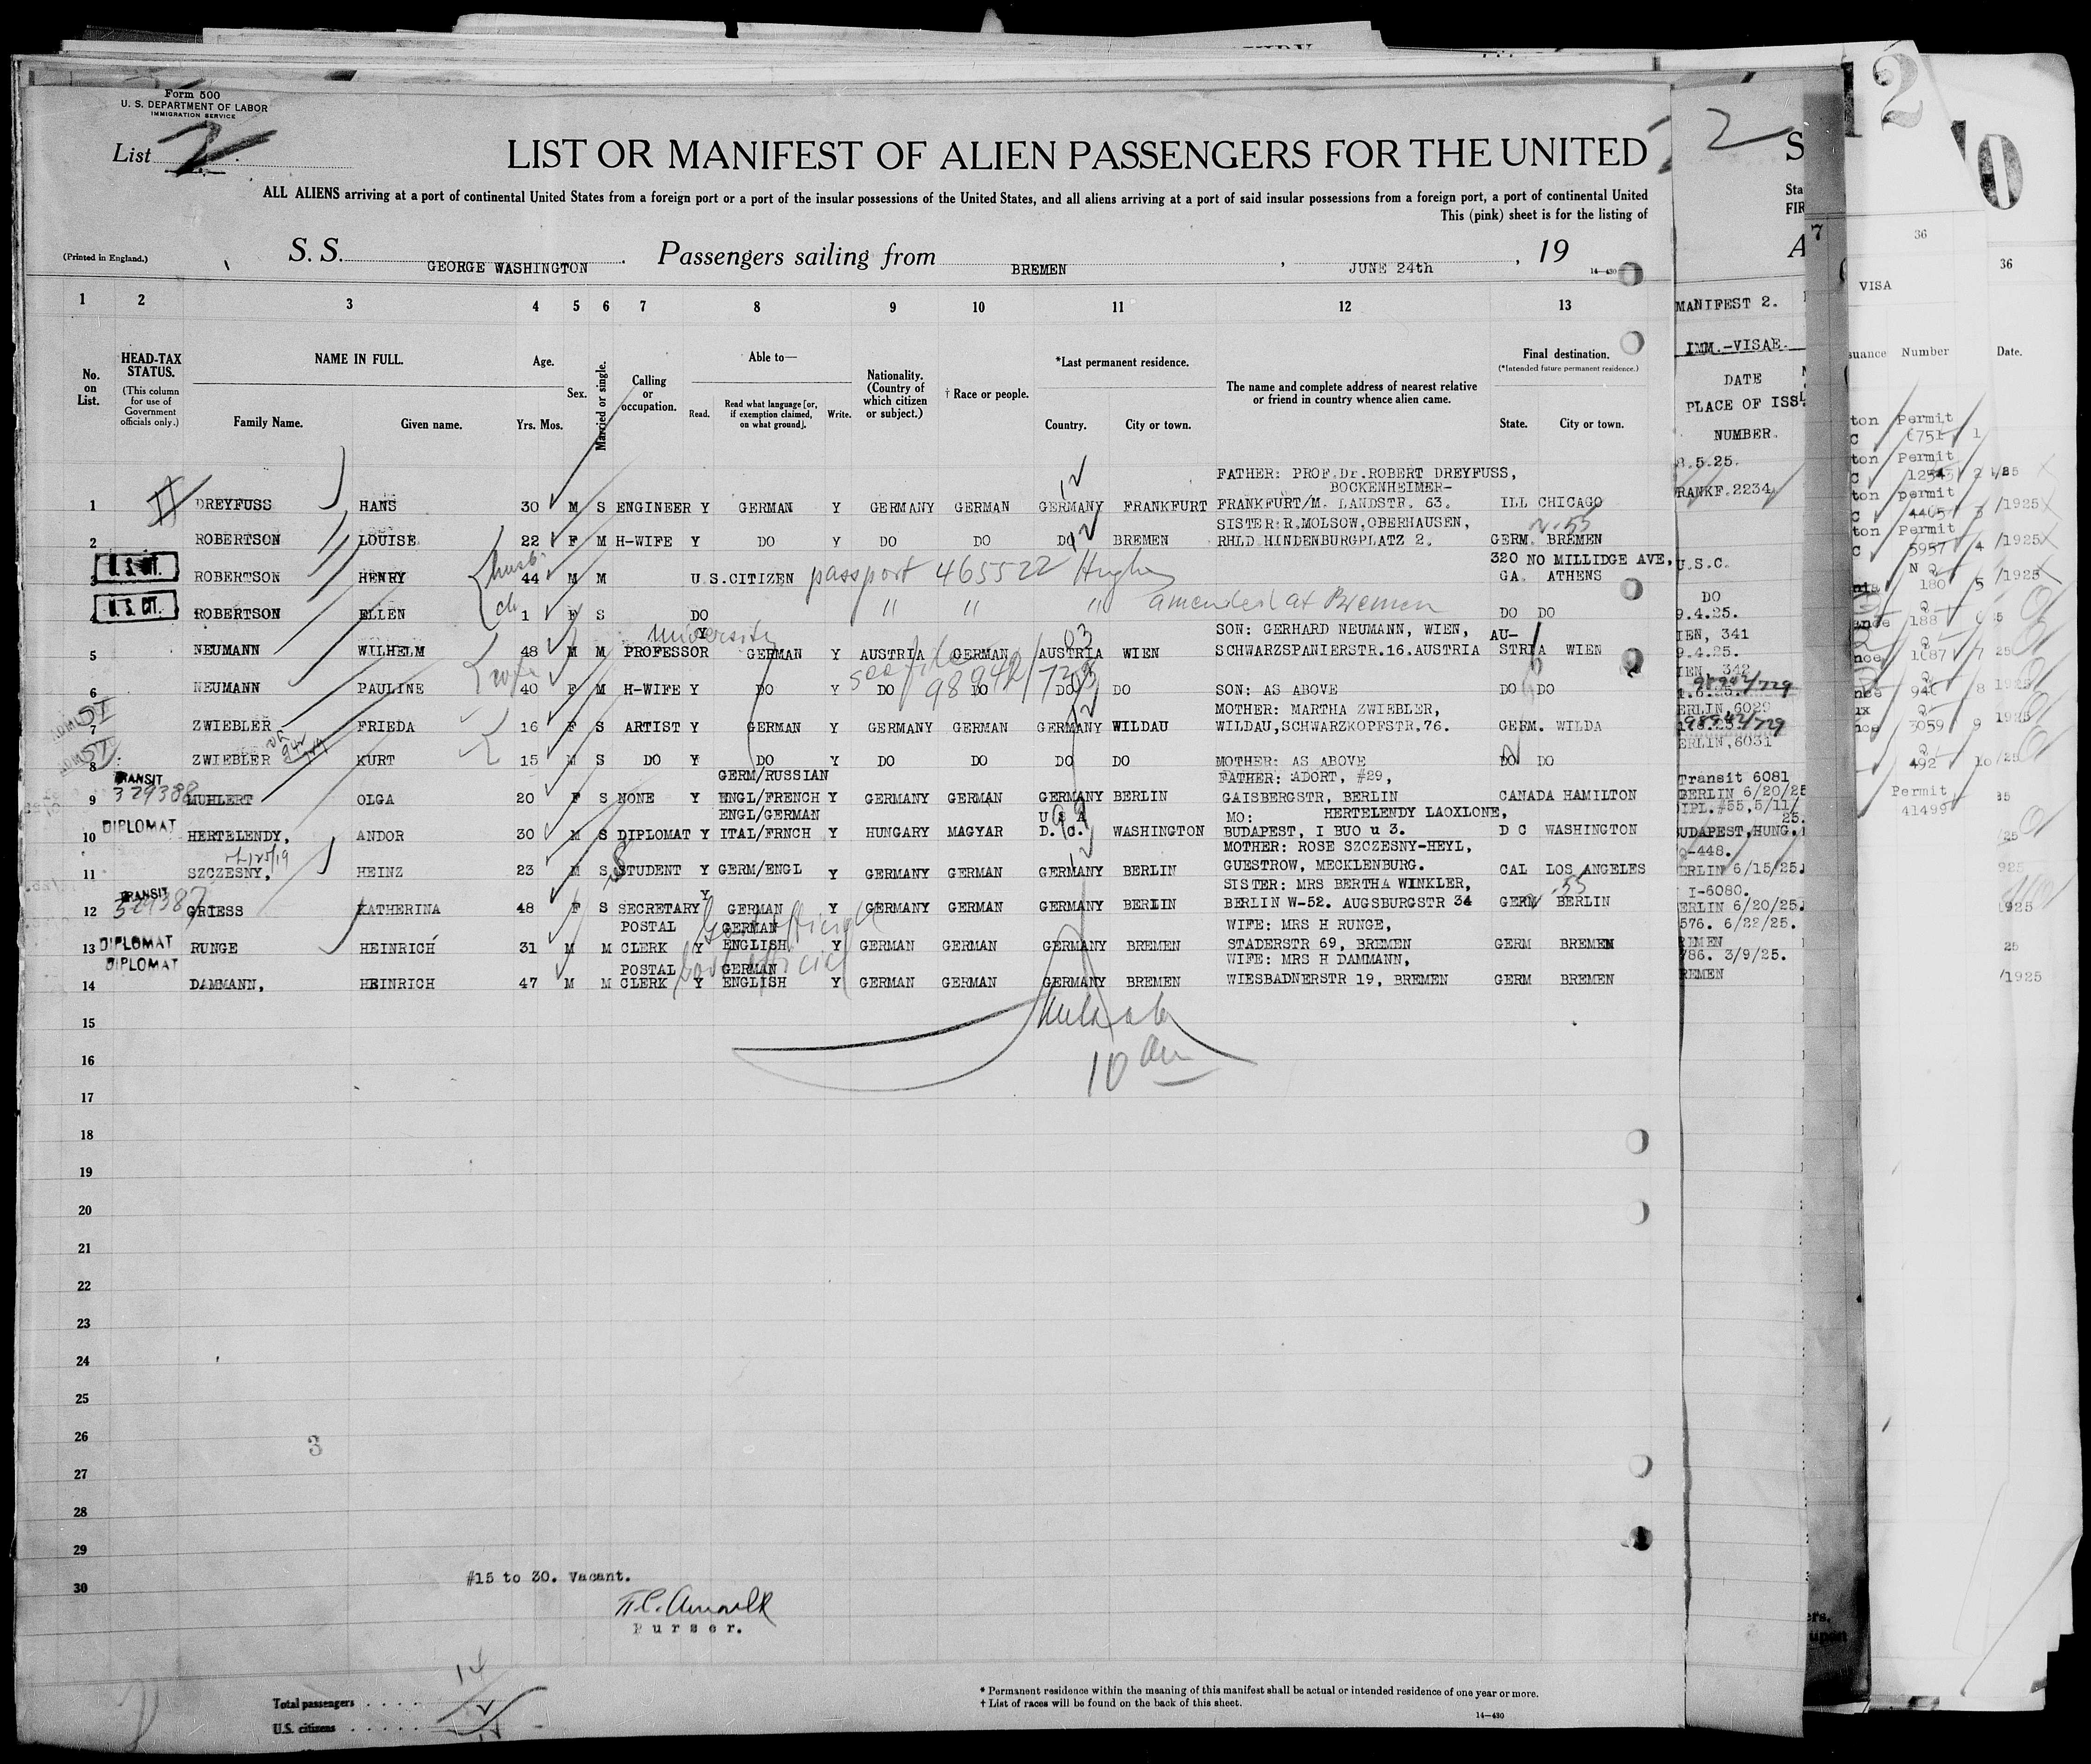 Form 500
U. S. DEPARTMENT OF LABOR
IMMIGRATION SERVICE
List 2
LIST OR MANIFEST OF ALIEN PASSENGERS FOR THE UNITED
ALL ALIENS arriving at a port of continental United States from a foreign port or a port of the insular possessions of the United States, and all aliens arriving at a port of said insular possessions from a foreign port, a port of continental United
This (pink) sheet is for the listing of
(Printed in England.)
S. S. GEORGE WASHINGTON Passengers sailing from BREMEN , JUNE 24th , 19
1 2 3 4 5 6 7 8 9 10 11 12 13
No. on List.
HEAD-TAX STATUS.
(This column for use of Government officials only.)
NAME IN FULL.
Family Name. Given name.
Age.
Yrs. Mos.
Sex.
Married or single.
Calling or occupation.
Able to—
Read. Read what language [or, if exemption claimed, on what ground]. Write.
Nationality. (Country of which citizen or subject.)
† Race or people.
*Last permanent residence.
Country. City or town.
The name and complete address of nearest relative or friend in country whence alien came.
Final destination.
(*Intended future permanent residence.)
State. City or town.
FATHER: PROF.Dr.ROBERT DREYFUSS,
BOCKENHEIMER-
1 DREYFUSS HANS 30 M S ENGINEER Y GERMAN Y GERMANY GERMAN GERMANY FRANKFURT FRANKFURT/M. LANDSTR. 63. ILL CHICAGO
SISTER:R.MOLSOW,OBERHAUSEN,
2 ROBERTSON LOUISE 22 F M H-WIFE Y DO Y DO DO DO BREMEN RHLD HINDENBURGPLATZ 2. GERM. BREMEN
320 NO MILLIDGE AVE,
3 U.S. CIT. ROBERTSON HENRY 44 M M U.S.CITIZEN passport 465522 Hughes GA. ATHENS
4 U.S. CIT. ROBERTSON ELLEN 1 F S DO " " " amended at Bremen DO DO
university
SON: GERHARD NEUMANN, WIEN, AU-
5 NEUMANN WILHELM 48 M M PROFESSOR Y GERMAN Y AUSTRIA GERMAN AUSTRIA WIEN SCHWARZSPANIERSTR.16.AUSTRIA STRIA WIEN
see file 98942/729
6 NEUMANN PAULINE wife 40 F M H-WIFE Y DO Y DO DO DO DO SON: AS ABOVE DO DO
MOTHER: MARTHA ZWIEBLER,
7 ZWIEBLER FRIEDA 16 F S ARTIST Y GERMAN Y GERMANY GERMAN GERMANY WILDAU WILDAU,SCHWARZKOPFSTR,76. GERM. WILDA
8 ZWIEBLER KURT 15 M S DO Y DO Y DO DO DO DO MOTHER: AS ABOVE DO DO
TRANSIT GERM/RUSSIAN FATHER: ADORT, #29,
329388
9 MUHLERT OLGA 20 F S NONE Y ENGL/FRENCH Y GERMANY GERMAN GERMANY BERLIN GAISBERGSTR, BERLIN CANADA HAMILTON
DIPLOMAT ENGL/GERMAN U S A MO: HERTELENDY LAOXLONE,
10 HERTELENDY, ANDOR 30 M S DIPLOMAT Y ITAL/FRNCH Y HUNGARY MAGYAR D. C. WASHINGTON BUDAPEST, I BUO u 3. D C WASHINGTON
MOTHER: ROSE SZCZESNY-HEYL,
11 SZCZESNY, HEINZ 23 M S STUDENT Y GERM/ENGL Y GERMANY GERMAN GERMANY BERLIN GUESTROW, MECKLENBURG. CAL LOS ANGELES
TRANSIT SISTER: MRS BERTHA WINKLER,
329387
12 GRIESS KATHERINA 48 F S SECRETARY Y GERMAN Y GERMANY GERMAN GERMANY BERLIN BERLIN W-52. AUGSBURGSTR 34 GERM BERLIN
DIPLOMAT POSTAL GERMAN WIFE: MRS H RUNGE,
13 RUNGE HEINRICH 31 M M CLERK Y ENGLISH Y GERMAN GERMAN GERMANY BREMEN STADERSTR 69, BREMEN GERM BREMEN
DIPLOMAT POSTAL GERMAN WIFE: MRS H DAMMANN,
14 DAMMANN, HEINRICH 47 M M CLERK Y ENGLISH Y GERMAN GERMAN GERMANY BREMEN WIESBADNERSTR 19, BREMEN GERM BREMEN
15
16
10 am
17
18
19
20
21
22
23
24
25
26
3
27
28
29
30
#15 to 30. Vacant.
Purser.
Total passengers 14
U.S. citizens
* Permanent residence within the meaning of this manifest shall be actual or intended residence of one year or more.
† List of races will be found on the back of this sheet.
14—430
2
MANIFEST 2.
IMM.-VISAE.
DATE
PLACE OF ISS
NUMBER.
8.5.25.
RANKF.2234
U.S.C.
DO
9.4.25.
IEN, 341
9.4.25.
IEN, 342
98942/729
ERLIN,6029
98942/729
ERLIN,6031
Transit 6081
BERLIN 6/20/25
DIPL.#55,5/11/
25.
BUDAPEST,HUNG.
Q-448.
ERLIN 6/15/25.
I-6080.
ERLIN 6/20/25.
576. 6/22/25.
REMEN
786. 3/9/25.
REMEN
36
VISA
Number
Permit
Permit
permit
Permit
5957 4
180 5
188
1087 7
3059 9
492 10
Permit
41499
36
Date.
/1925